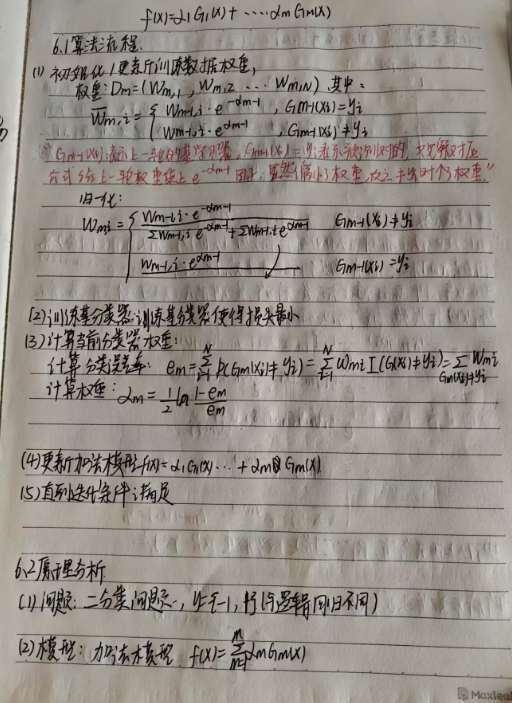 f(x)=α₁G₁(x)+ ‥‥αmGm(x)
6.1算法流程.
(1) 初始化/更新训练数据权重,
权重: Dm=(Wm,1, Wm,2 ... Wm,N) 其中:
W̅m,i = { Wm-1,i · e^-αm-1 , Gm-1(xi)=yi
Wm-1,i · e^αm-1 , Gm-1(xi)≠yi
"Gm-1(xi)表示上一轮的基学习器, Gm-1(xi)=yi表示预测对的,
上一轮权重乘上e^-αm-1
归一化:
Wmi = { Wm-1,i · e^-αm-1 / ΣWm-1,i e^-αm-1 + ΣWm-1,i e^αm-1 Gm-1(xi)≠yi
Wm-1,i · e^αm-1 Gm-1(xi)=yi
(2)训练基分类器:训练基分类器使得损失最小
(3)计算当前分类器权重:
计算分类误差率: em=Σ_{i=1}^{N} P(Gm(xi)≠yi)=Σ_{i=1}^{N} Wmi I(G(xi)≠yi)=Σ_{Gm(xi)≠yi} Wmi
计算权重: αm=1/2 ln (1-em)/em
(4)更新加法模型f(x)=α₁G₁(x)...+αmGm(x)
(5)直到迭代条件满足
6.2原理分析
(1)问题: 二分类问题, y={-1, 1}(与逻辑回归不同)
(2)模型: 加法模型 f(x)=Σ^{m} αmGm(x)
Maxleaf